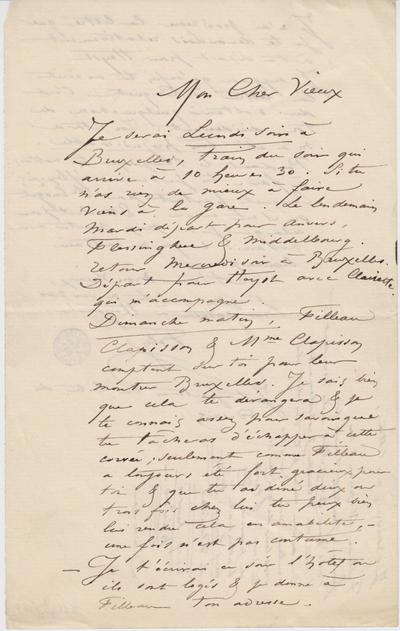 Mon Cher Vieux
Je serai Lundi soir à
Bruxelles, train du soir qui
arrive à 10 heures 30. Si tu
n'as rien de mieux à faire
viens à la gare. Le lendemain
Mardi départ pour Anvers,
Flessinghue & Middelbourg.
retour Mercredi soir à Bruxelles.
Départ pour avec Clairette
qui m'accompagne.
Dimanche matin, Filleau
Clapisson & Mme Clapisson
comptent sur toi pour leur
montrer Bruxelles. Je sais bien
que cela te dérangera & je
te connais assez pour savoir que
tu tâcheras d'échapper à cette
corvée; seulement comme Filleau
a toujours été fort gracieux pour
toi & que tu as diné deux ou
trois fois chez lui tu peux bien
lui rendre cela en amabilité, –
une fois n'est pas coutume.
– Je t'écrirai ce soir l'hôtel où
ils sont logés & je donne à
Filleau ton adresse.